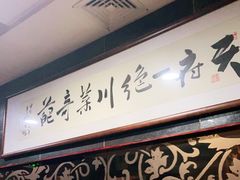 天府一绝川菜奇葩